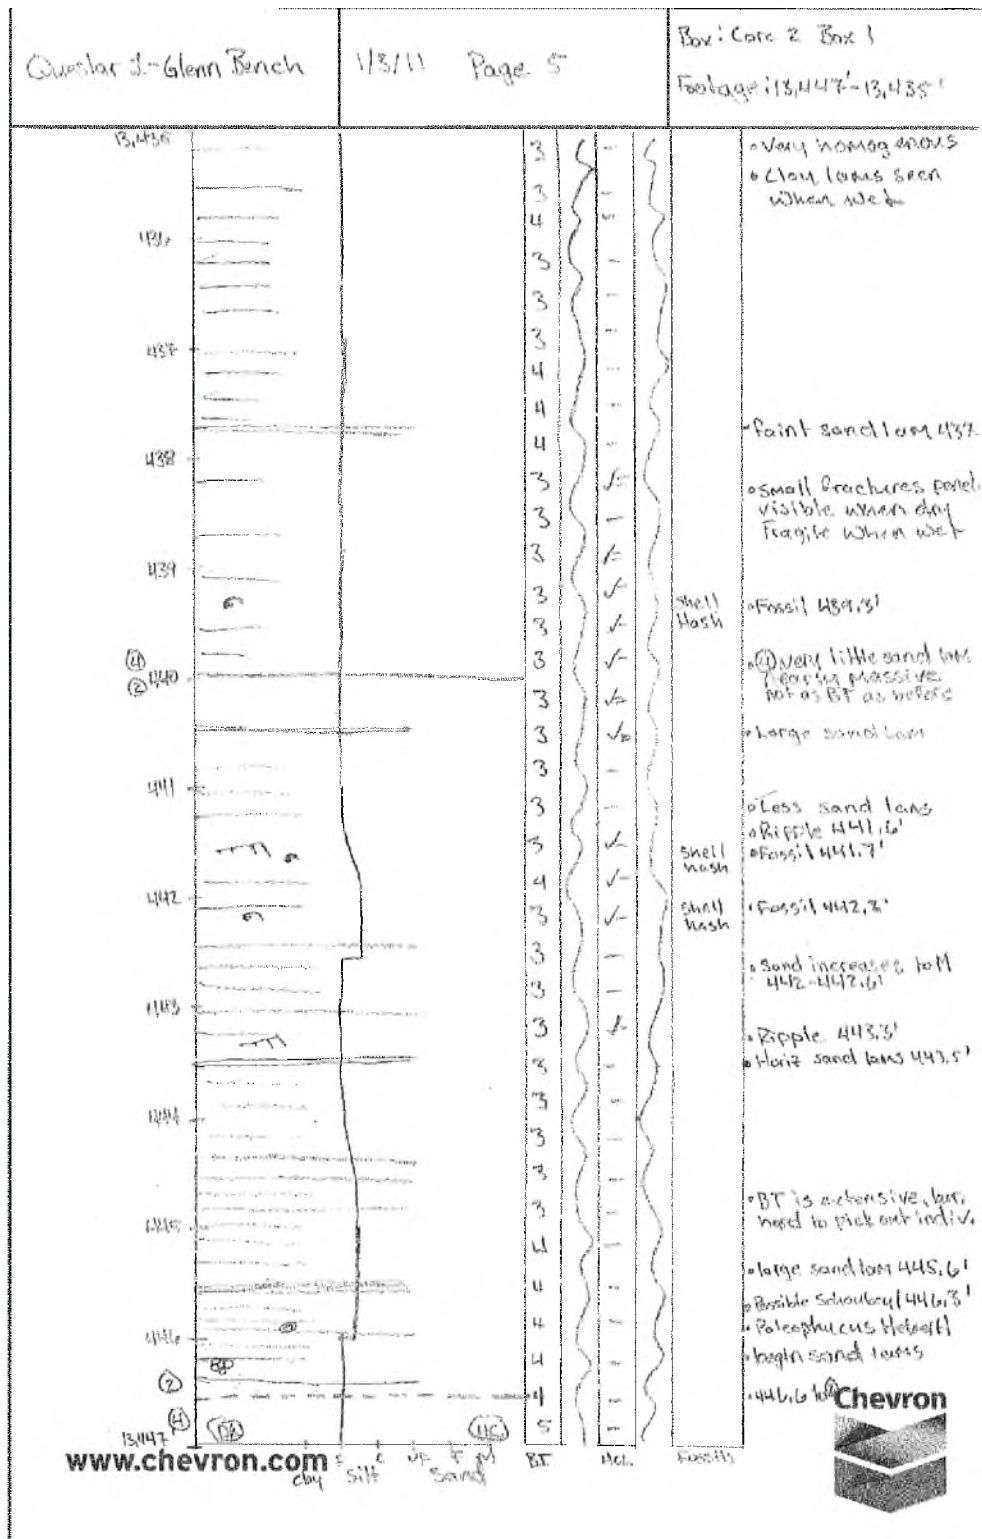 Questar 1-Glenn Bench
1/3/11 Page 5
Box: Core 2 Box 1
Footage: 13,447'-13,435'
13,435
436
437
438
439
④
② 440
441
442
443
444
445
446
②
④
13,447
3
3
4
3
3
3
4
4
4
3
3
3
3
3
3
3
3
3
3
3
4
3
3
3
3
3
3
3
3
3
4
4
4
4
4
5
Shell
Hash
Shell
hash
Shell
hash
• Very homogenous
• Clay lams seen
when wet
• faint sand lam 437
• Small fractures
visible when dry
Fragile when wet
• Fossil 439.3'
• ④ very little sand lam
nearly massive
not as BT as before
• Large sand lam
• Less sand lams
• Ripple 441.6'
• Fossil 441.7'
• Fossil 442.2'
• Sand increases to M
442-442.6'
• Ripple 443.3'
• Horiz sand lams 443.5'
• BT is extensive, but
hard to pick out indiv.
• large sand lam 445.6'
• Possible 446.3'
• Paleophycus
• begin sand lams
• 446.6 to
clay
silt
Sand
vf F M
B.T.
HCL
Fossils
www.chevron.com
Chevron